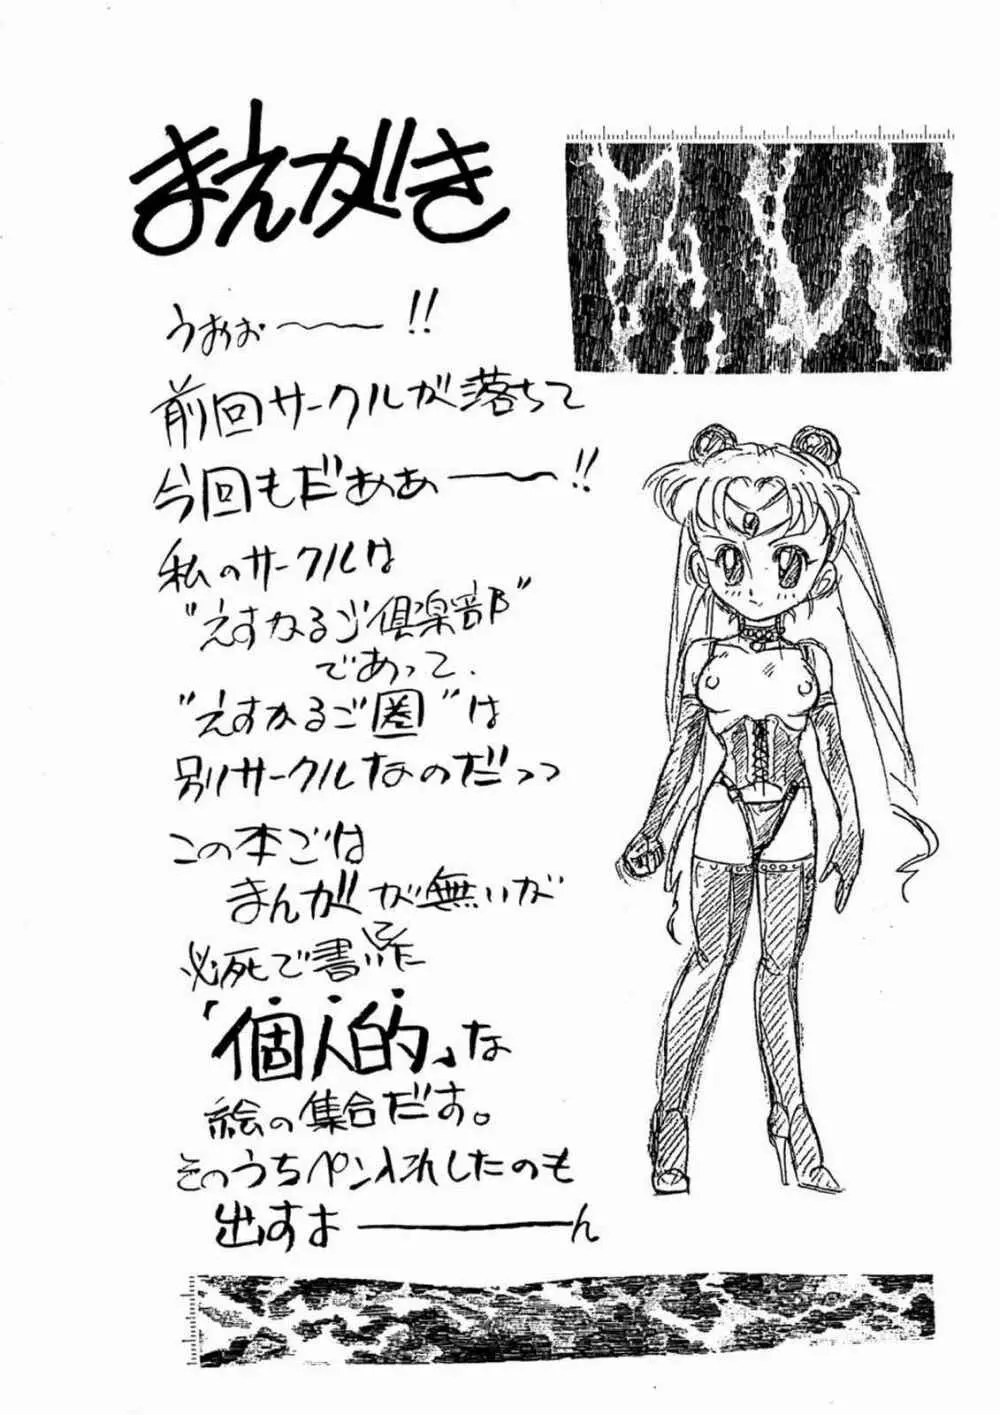 まえがき
うおお〜〜!!
前回サークルが落ちて
今回もだぁぁー〜!!
私のサークルは
"えすかるご倶楽部"
であって、
"えすかるご圏"は
別サークルなのだっっ
この本ごは
まんがが無いが
必死で書いた
「個人的」な
絵の集合だす。
そのうちペン入れしたのも
出すよ———ん